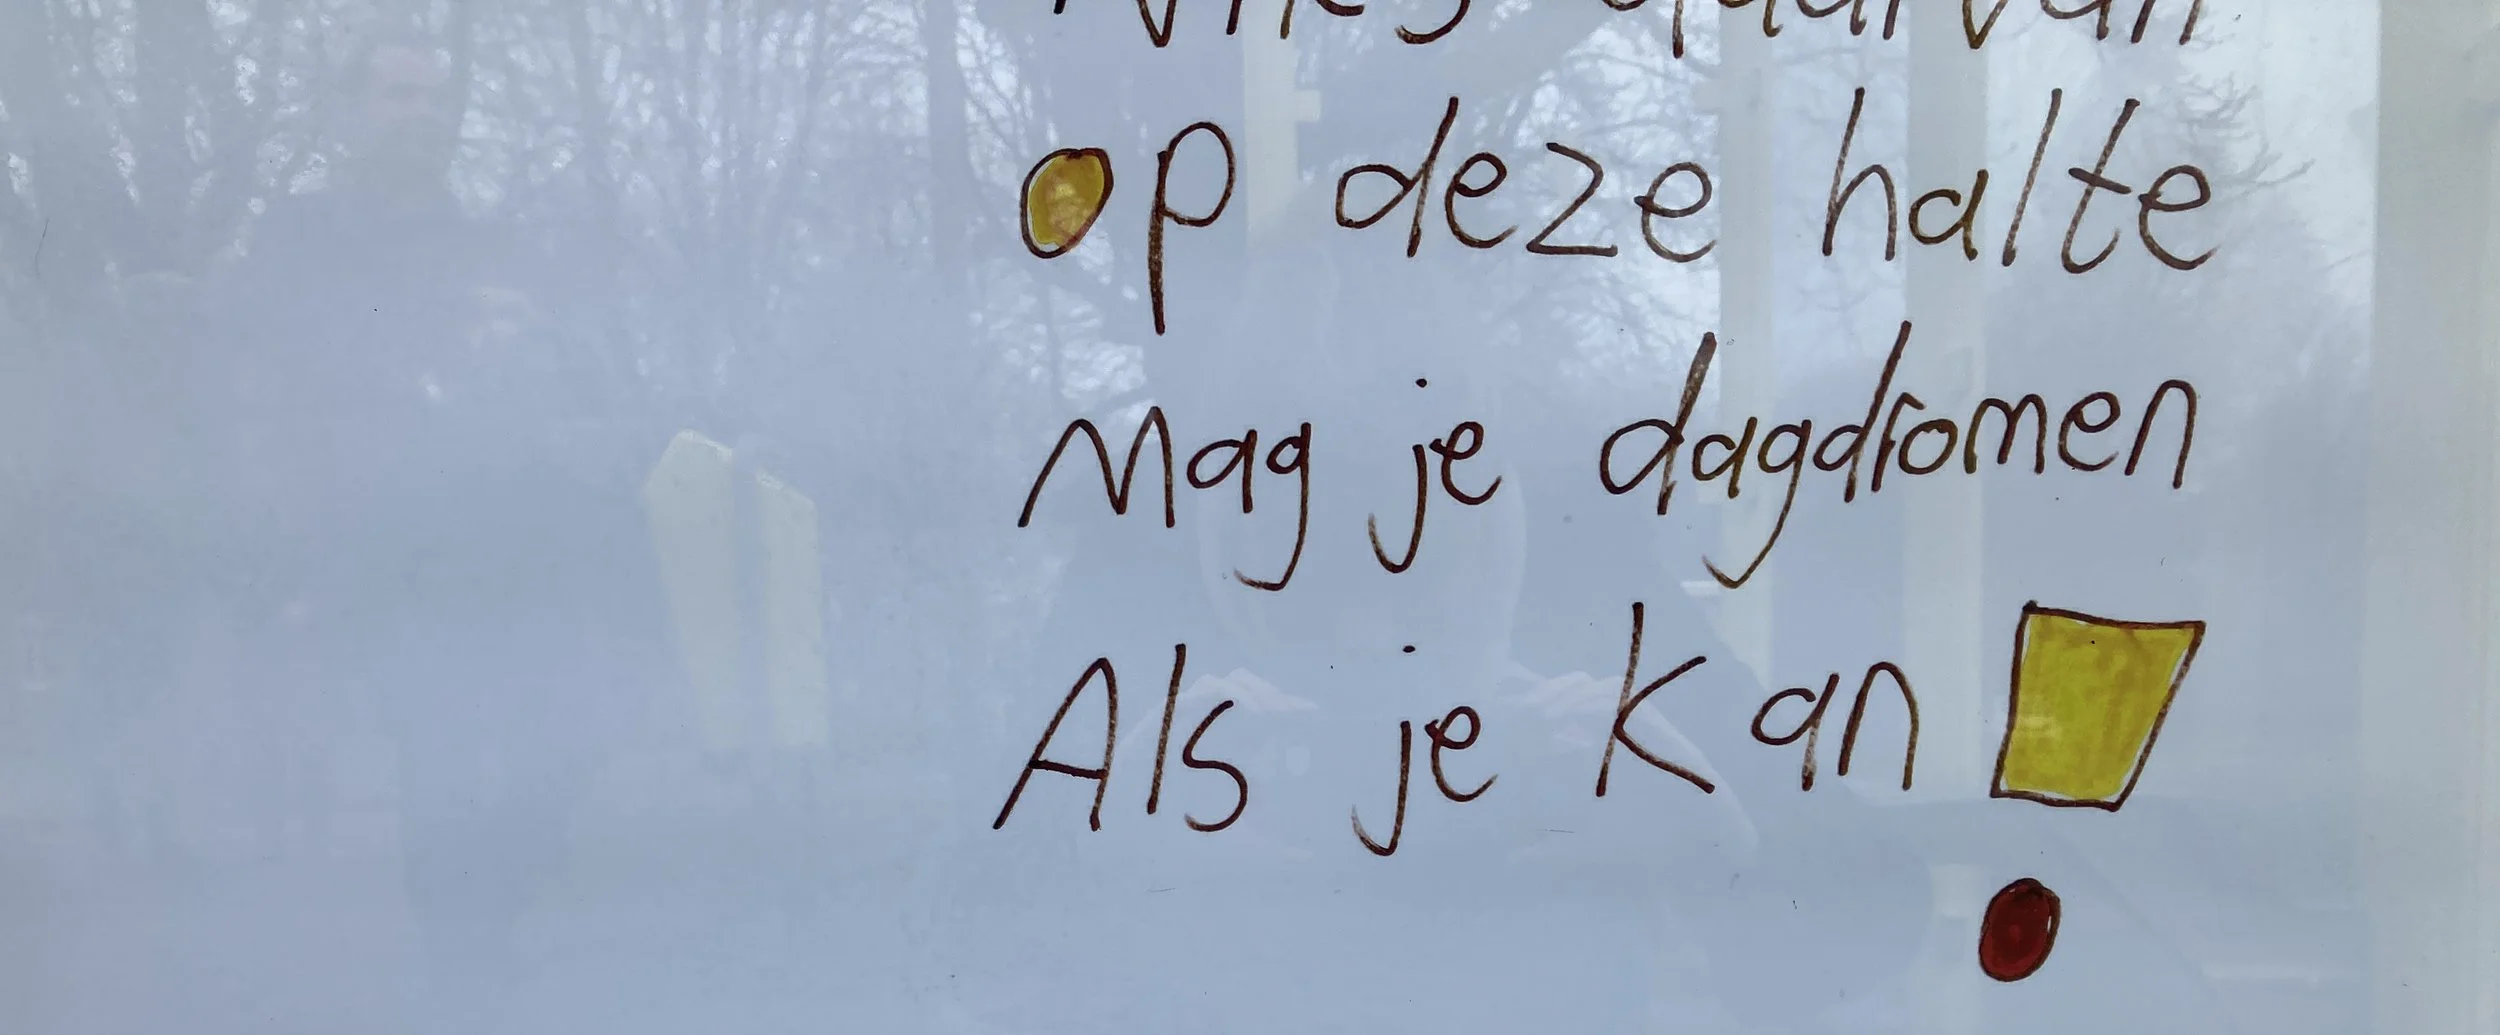 daarvan
op deze halte
Mag je dagdromen
Als je kan!